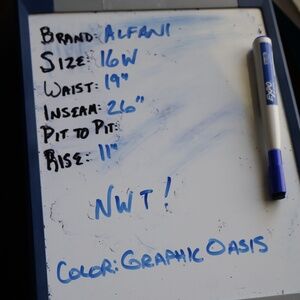 BRAND: ALFANI
SIZE: 16W
WAIST: 19"
INSEAM: 26"
PIT TO PIT:
RISE: 11"
NWT!
COLOR: GRAPHIC OASIS
EXPO